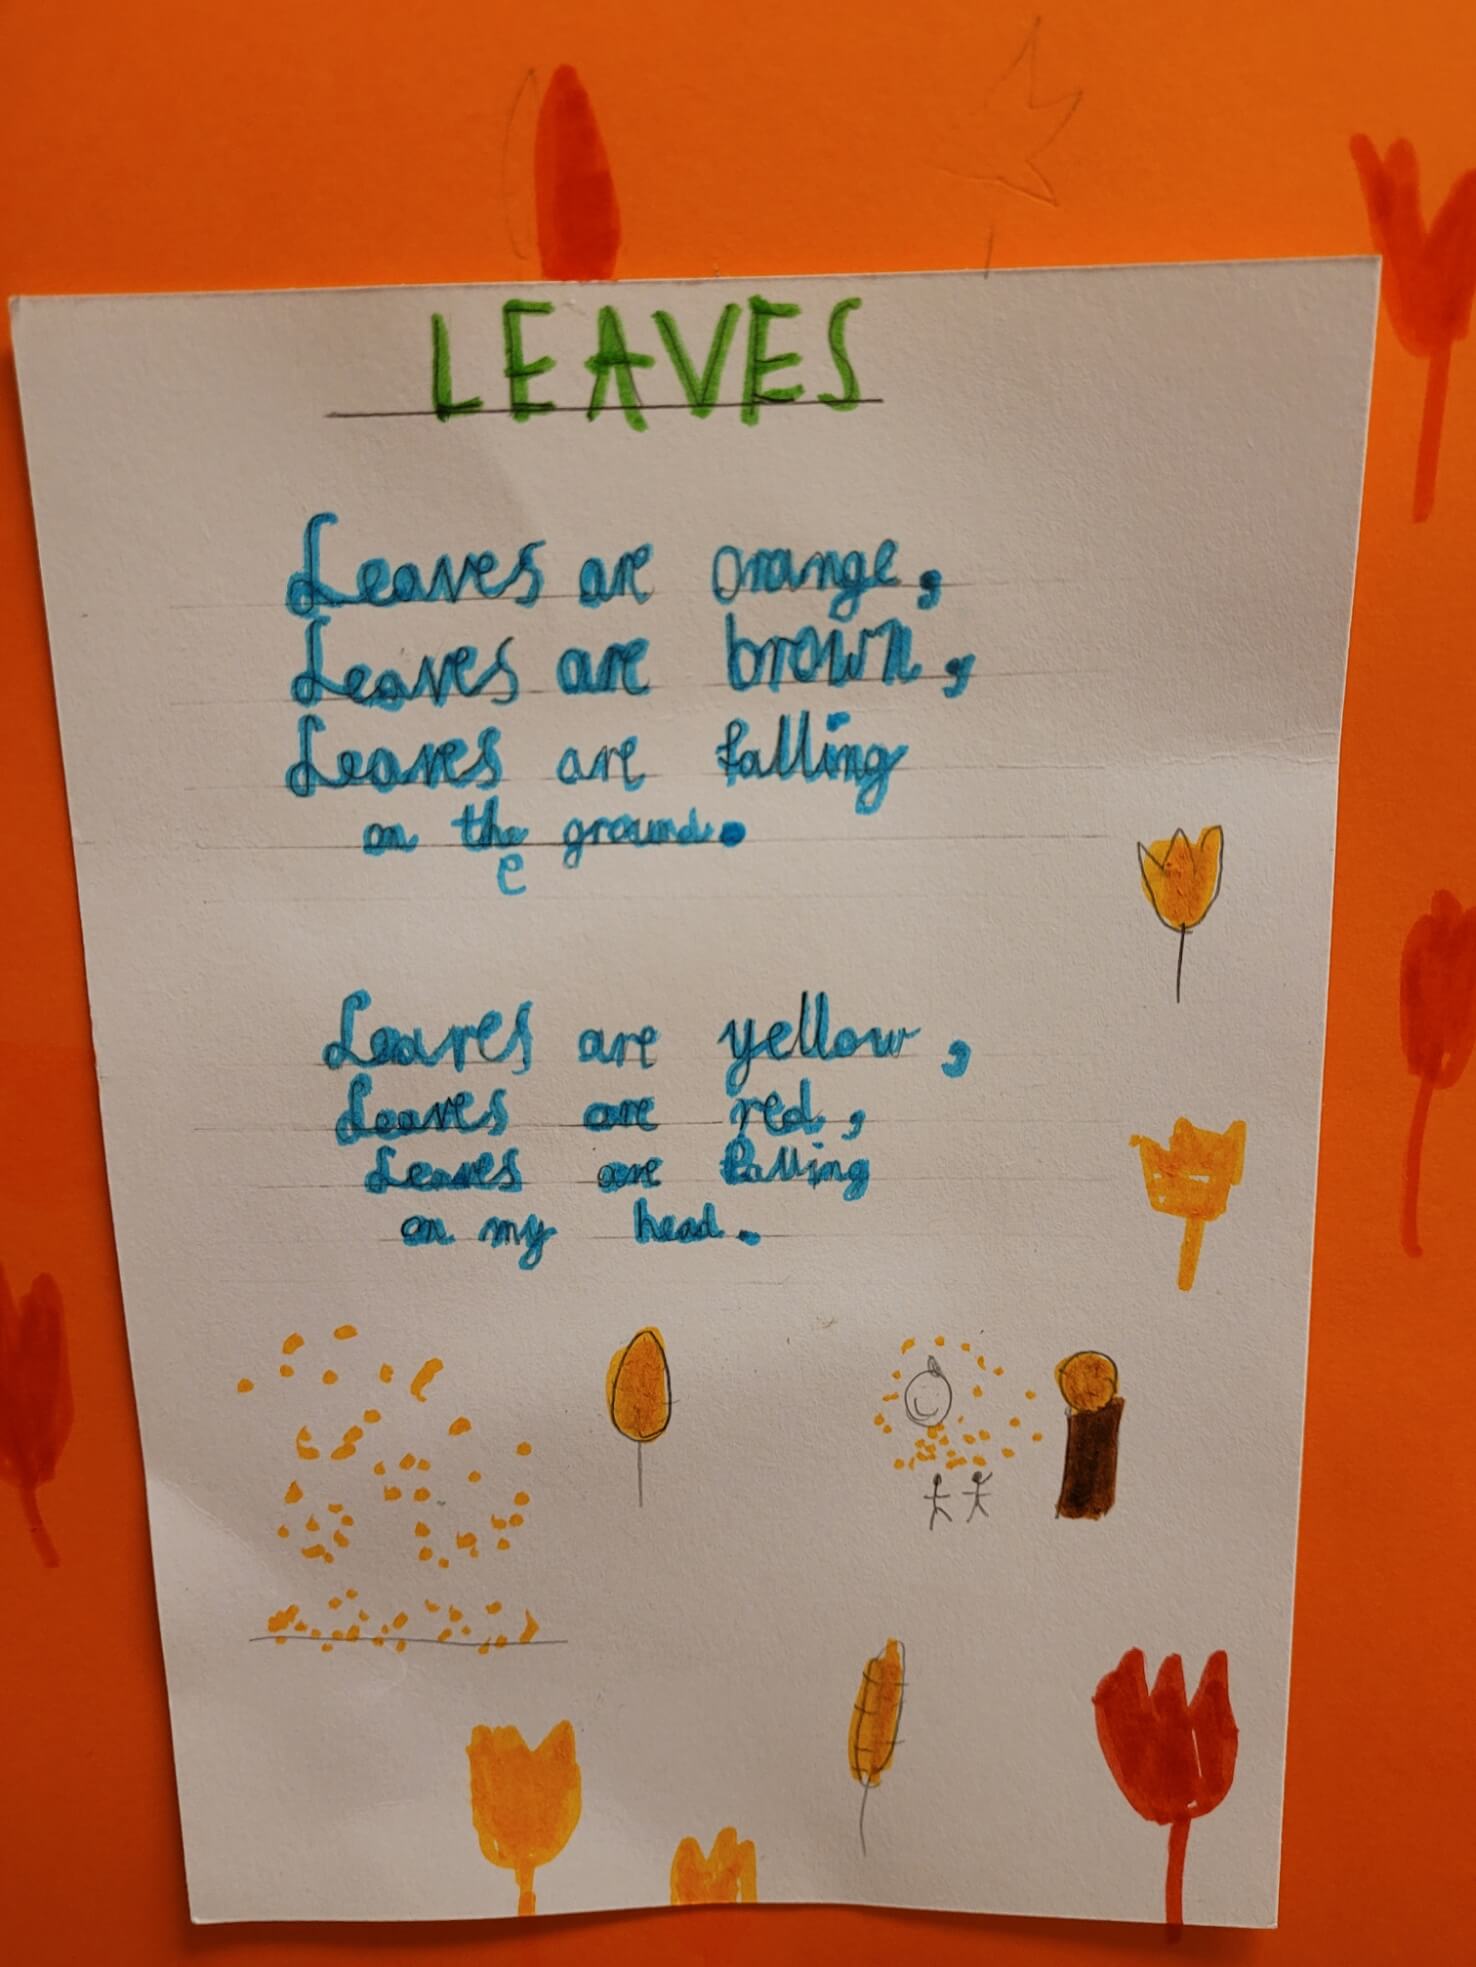 LEAVES
Leaves are orange,
Leaves are brown,
Leaves are falling
on the ground.
e
Leaves are yellow,
Leaves are red,
Leaves are falling
on my head.